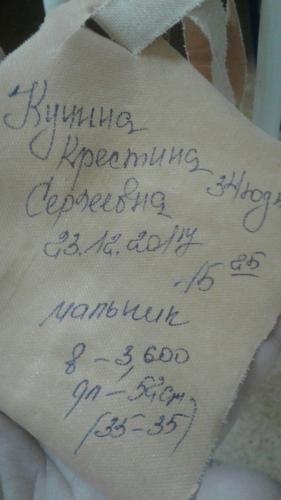 Кунина
Крестина
34 года
Сергеевна
23.12.2017
15 25
мальчик
в – 3,600
дл – 52 см
(35–35)